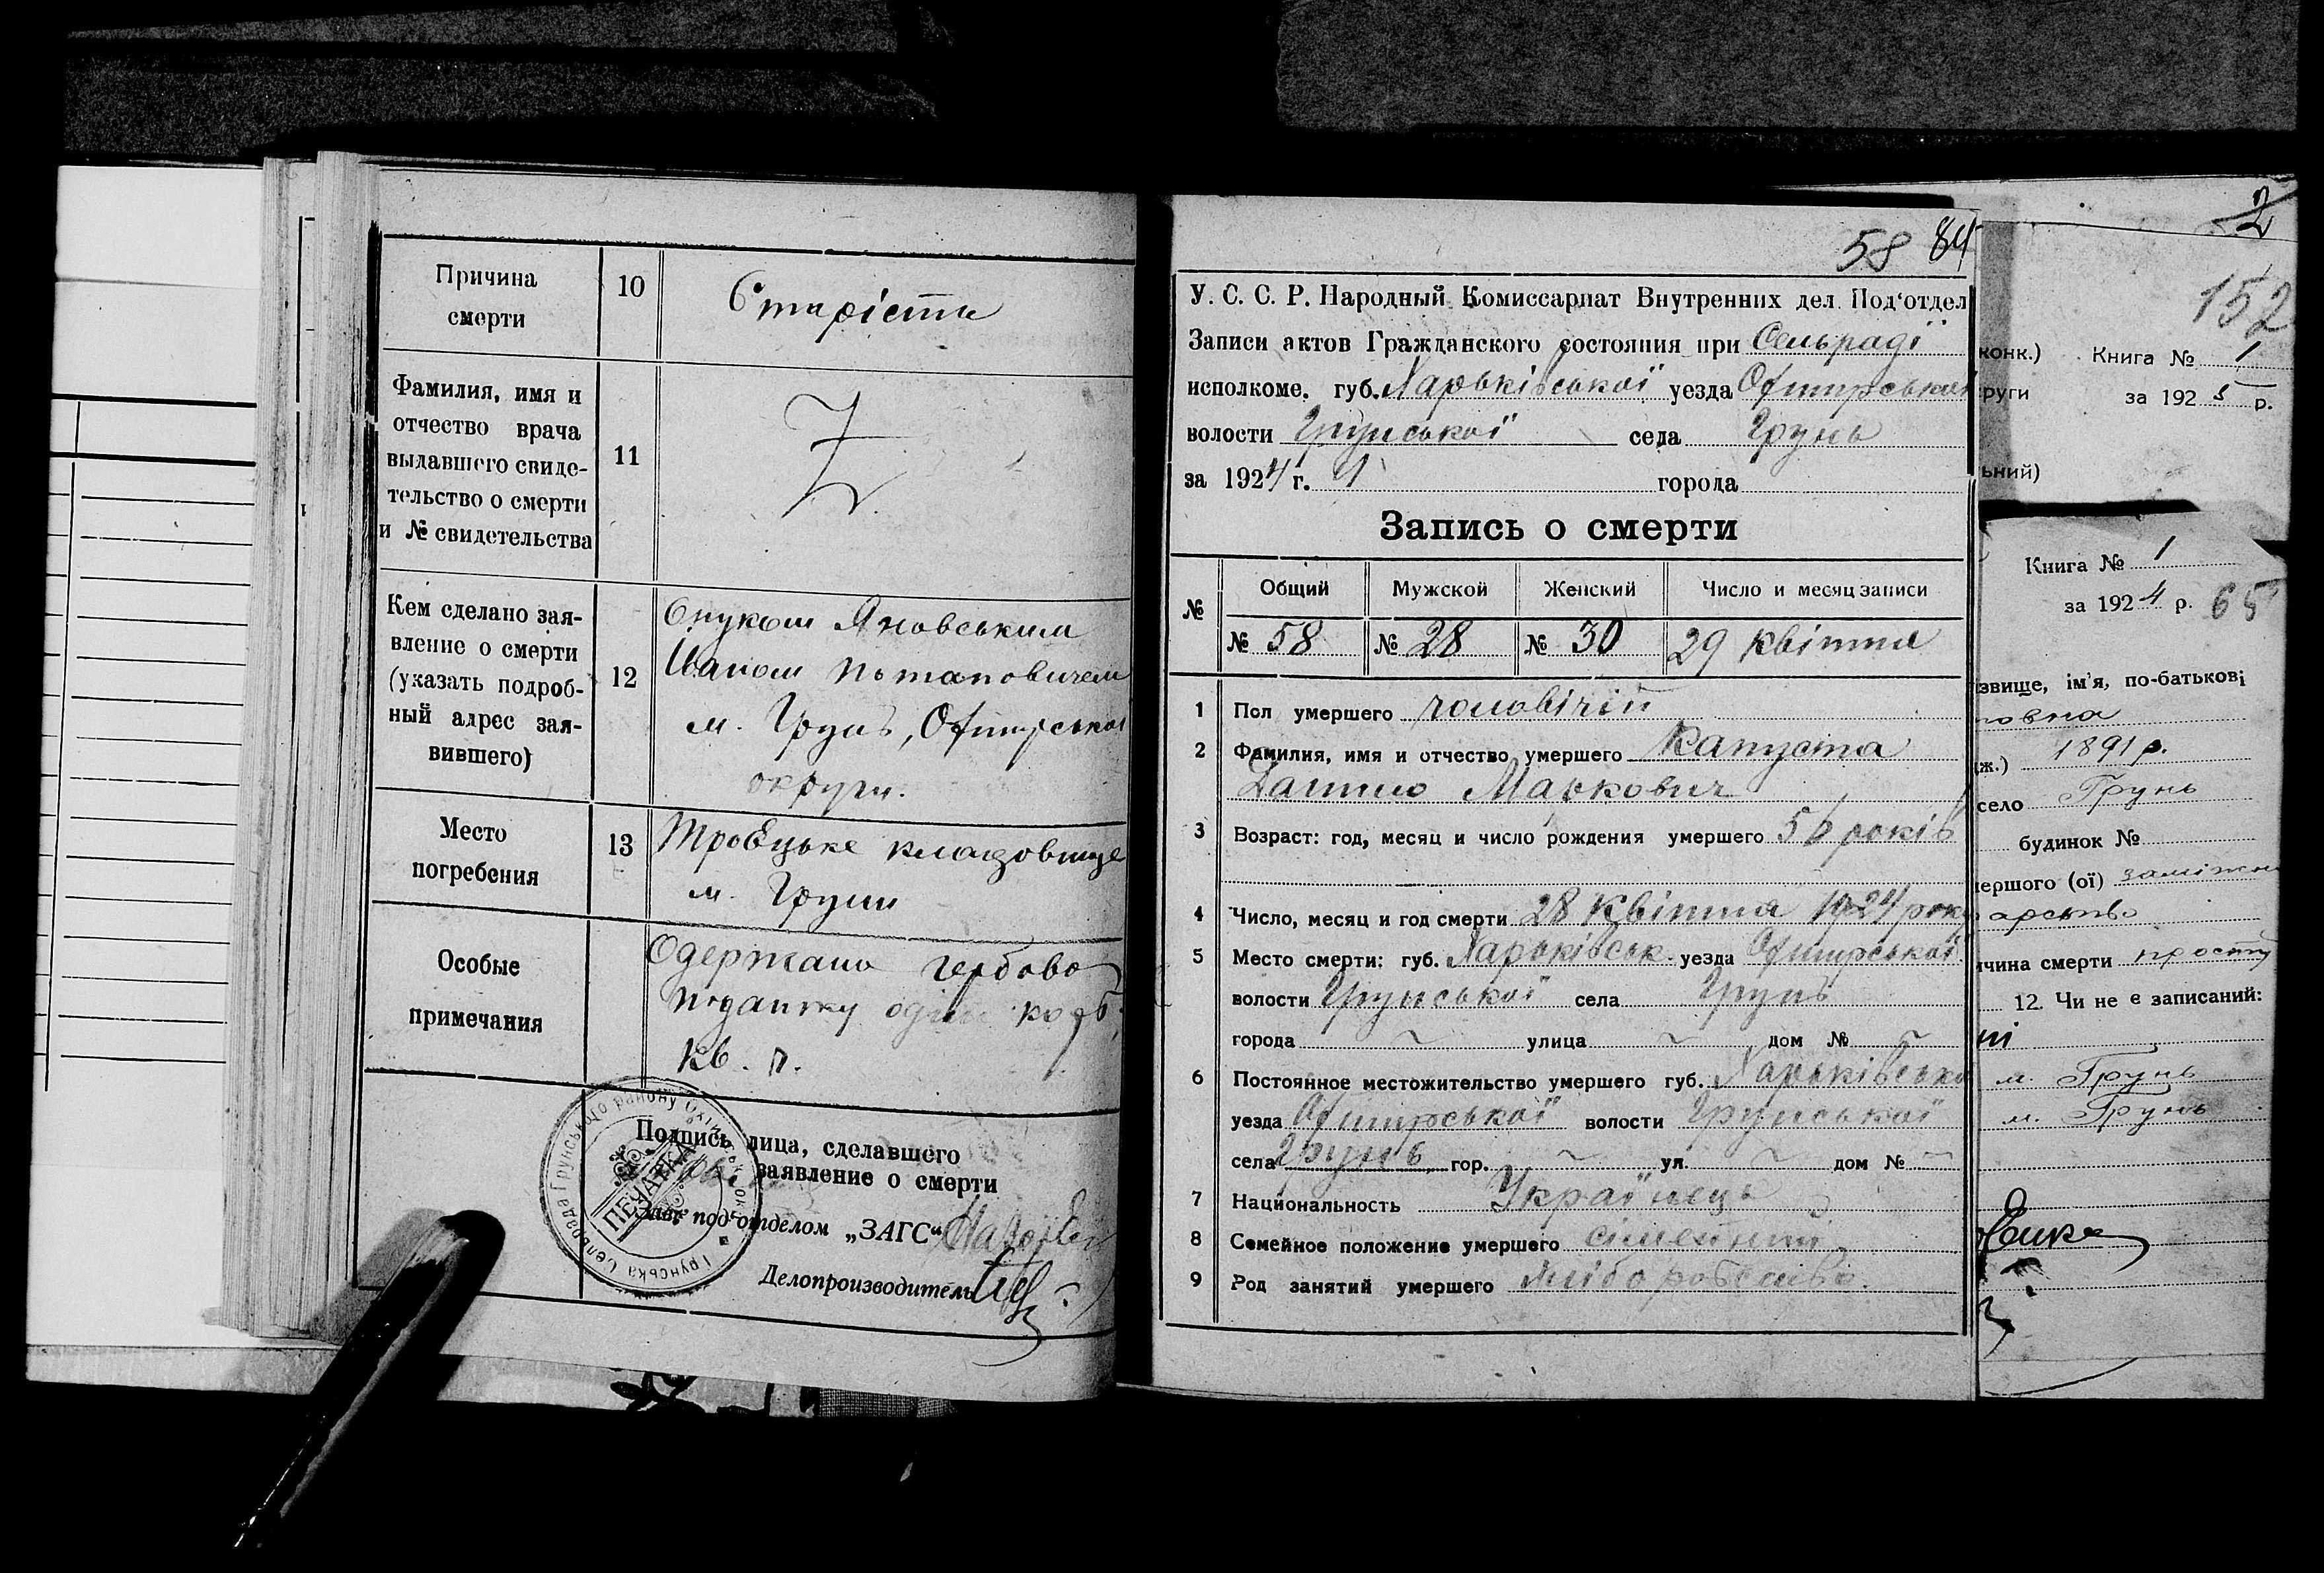 Причина
смерти
10
Старість
Фамилия, имя и
отчество врача
выдавшего свиде-
тельство о смерти
и № свидетельства
11
Кем сделано зая-
вление о смерти
(указать подроб-
ный адрес зая-
вившего)
12
Онуком Яновським
Іваном Потаповичем
м. Грунь, Охтирської
округи.
Место
погребения
13
кладовище
м. Груни
Особые
примечания
Одержано гербово
один карб.
кв. п.
Подпись лица, сделавшего
заявление о смерти
Зав. под'отделом „ЗАГС“
Делопроизводитель
ПЕЧАТКА
58 84
У. С. С. Р. Народный Комиссариат Внутренних дел Под‘отдел
Записи актов Гражданского состояния при Сельраді
исполкоме. губ. Харьківської уезда Охтирської
волости Грунської села Грунь
за 1924 г. города
Запись о смерти
№ Общий Мужской Женский Число и месяц записи
№ 58 № 28 № 30 29 квітня
1 Пол умершего чоловічий
2 Фамилия, имя и отчество умершего Капуста
Данило Маркович
3 Возраст: год, месяц и число рождения умершего 56 років
4 Число, месяц и год смерти 28 Квітня 1924 року
5 Место смерти: губ. Харьківськ. уезда Охтирської
волости Грунської села Грунь
города ~ улица ~ дом № ~
6 Постоянное местожительство умершего губ. Харьківсько
уезда Охтирської волости Грунської
села Грунь гор. ~ ул. ~ дом № ~
7 Национальность Українець
8 Семейное положение умершего сімейний
9 Род занятий умершего хлібороб
2
152
конк.) Книга № 1
руги за 1925 р.
ьний)
Книга № 1
за 1924 р. 65
звище, ім'я, по-батькові
овна
ж.) 1891 р.
село Грунь
будинок №
мершого (ої) заміжня
арство
ичина смерти
12. Чи не є записаний:
м. Грунь
м. Грунь